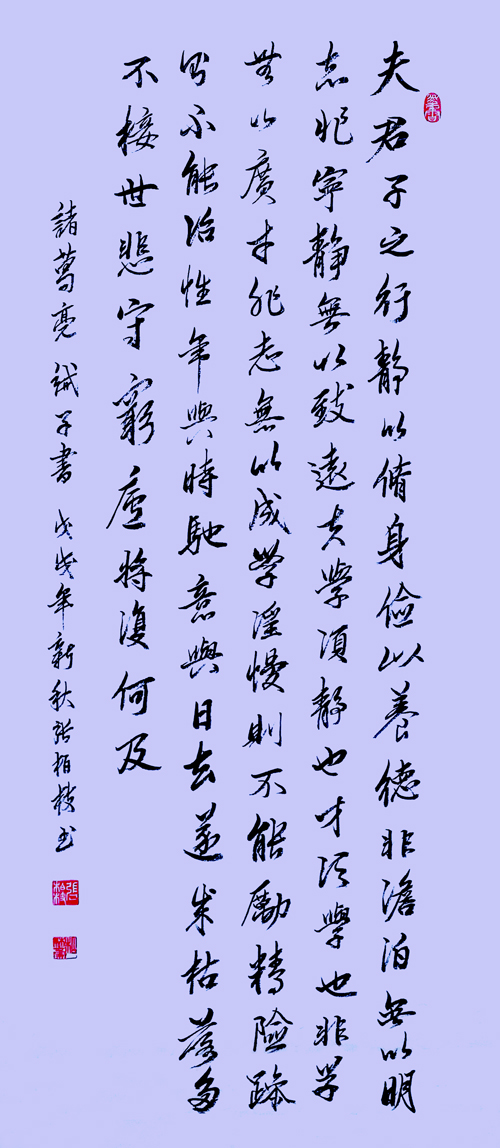 夫君子之行靜以脩身儉以養德非澹泊無以明
志非寧靜無以致遠夫學須靜也才須學也非學
無以廣才非志無以成學淫慢則不能勵精險躁
則不能治性年與時馳意與日去遂成枯落多
不接世悲守窮廬將復何及
諸葛亮誡子書 戊戌年新秋張柏枝书